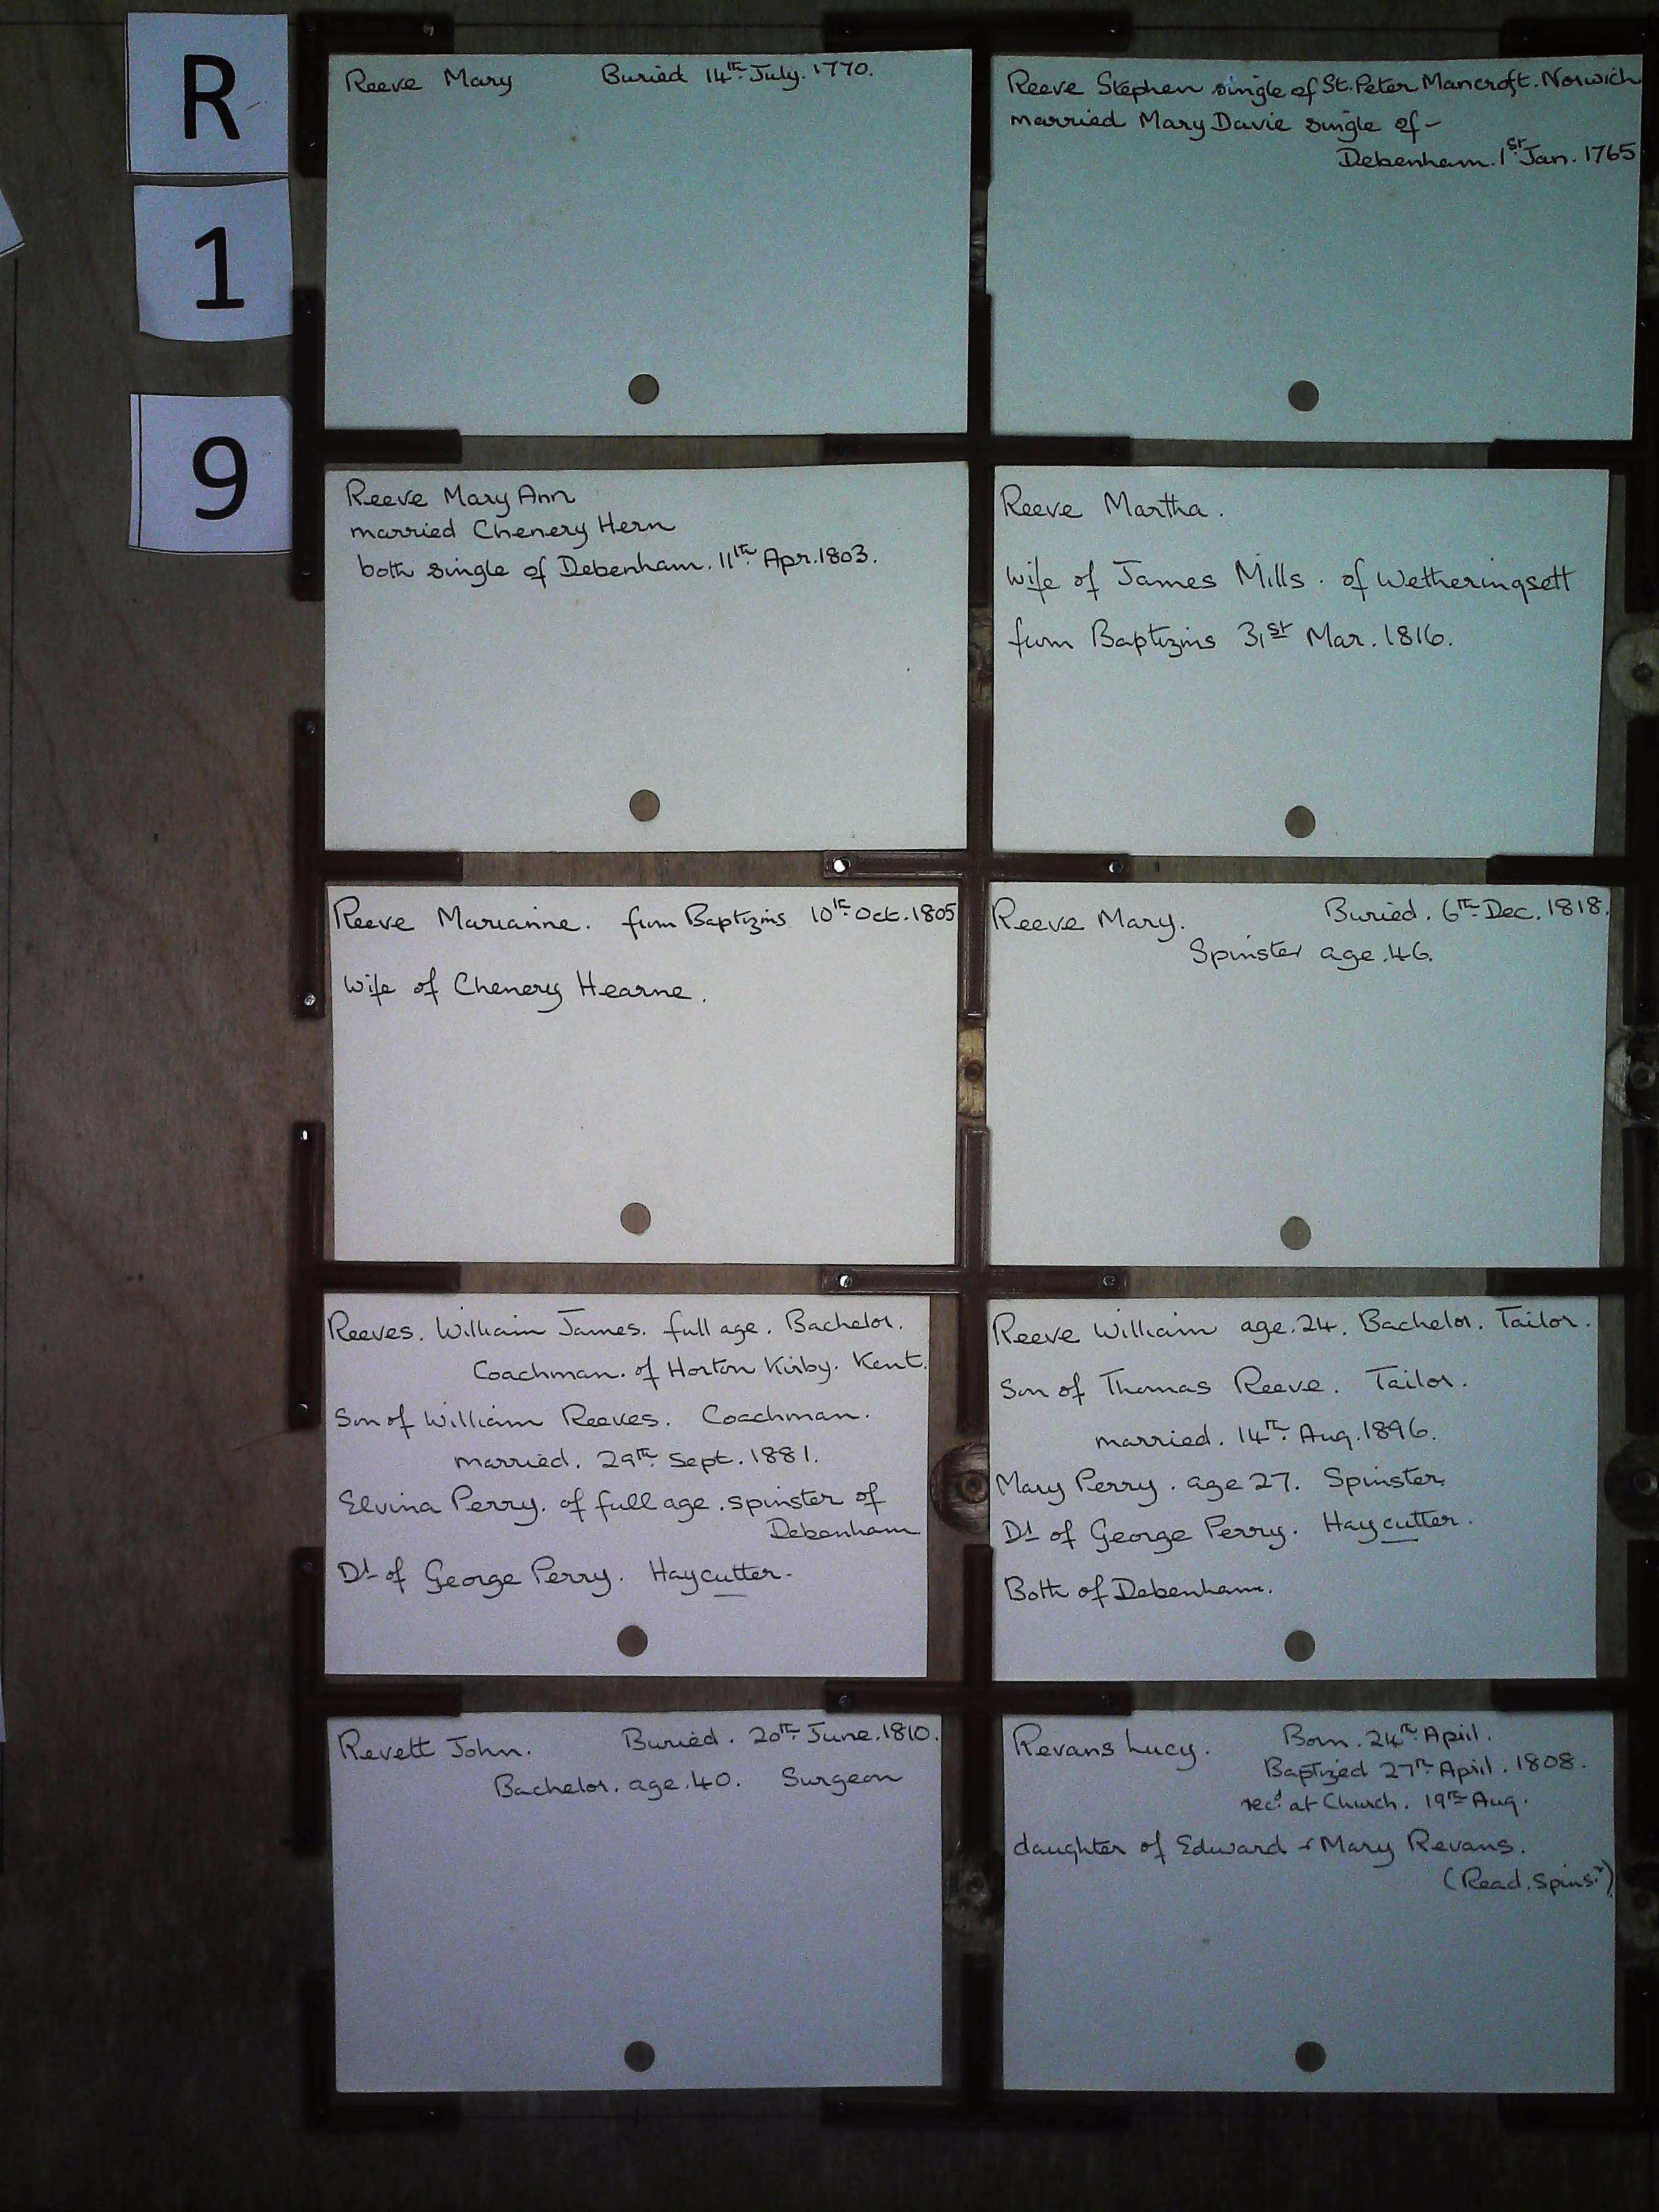 R
1
9
Reeve Mary Buried 14th July. 1770.
Reeve Stephen single of St. Peter Mancroft. Norwich
married Mary Davie single of -
Debenham. 1st Jan. 1765
Reeve Mary Ann
married Chenery Hern
both single of Debenham. 11th Apr. 1803.
Reeve Martha.
wife of James Mills. of Wetheringsett
from Baptizms 31st Mar. 1816.
Reeve Marianne. from Baptizms 10th Oct. 1805
wife of Chenery Hearne.
Reeve Mary. Buried. 6th Dec. 1818.
Spinster age. 46.
Reeves. William James. full age. Bachelor.
Coachman. of Horton Kirby. Kent.
Son of William Reeves. Coachman.
married. 29th Sept. 1881.
Elvina Perry. of full age. spinster of
Debenham
Dt of George Perry. Haycutter.
Reeve William age. 24. Bachelor. Tailor.
Son of Thomas Reeve. Tailor.
married. 14th Aug. 1896.
Mary Perry. age 27. Spinster
Dt of George Perry. Haycutter.
Both of Debenham.
Revett John. Buried. 20th June. 1810.
Bachelor. age. 40. Surgeon
Revans Lucy. Born. 24th April.
Baptized 27th April. 1808.
recd at Church. 19th Aug.
daughter of Edward & Mary Revans.
(Read. Spinsr)